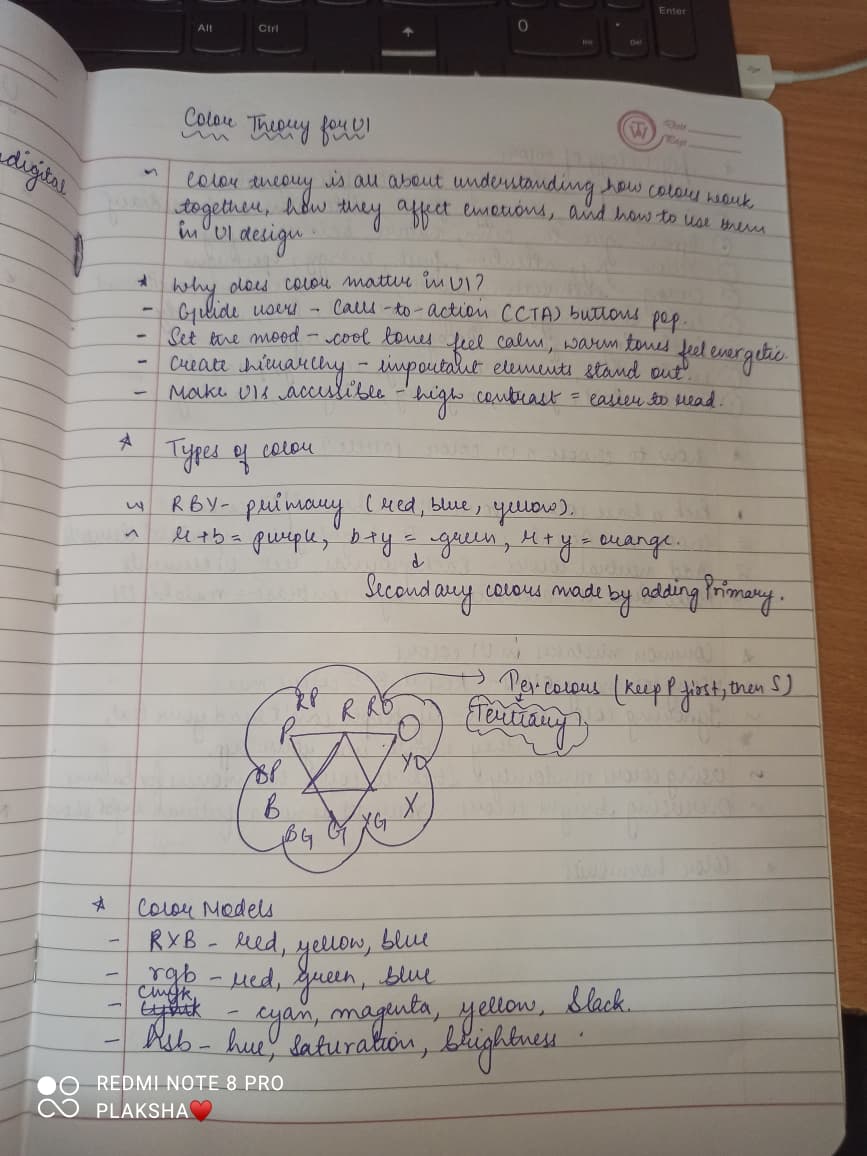 Alt
Ctrl
↑
0
Ins
.
Del
Enter
Colour Theory for UI
Date
Page
digital
~ Color theory is all about understanding how colours work
together, how they affect emotions, and how to use them
in UI design.
* Why does colour matter in UI?
- Guide users - Calls-to-action (CTA) buttons pop.
- Set the mood - cool tones feel calm, warm tones feel energetic.
- Create hierarchy - important elements stand out.
- Make UIs accessible - high contrast = easier to read.
* Types of colour
~ RBY- primary (red, blue, yellow).
~ r+b= purple, b+y = green, r+y = orange.
↓
Secondary colours made by adding Primary.
RP
R
RO
→ Per-colours (keep P first, then S)
Tertiary
P
O
BP
YO
B
Y
BG
G
YG
* Color Models
- RYB - red, yellow, blue
- rgb - red, green, blue
- cmyk - cyan, magenta, yellow, black.
- hsb - hue, saturation, brightness.
REDMI NOTE 8 PRO
PLAKSHA❤️